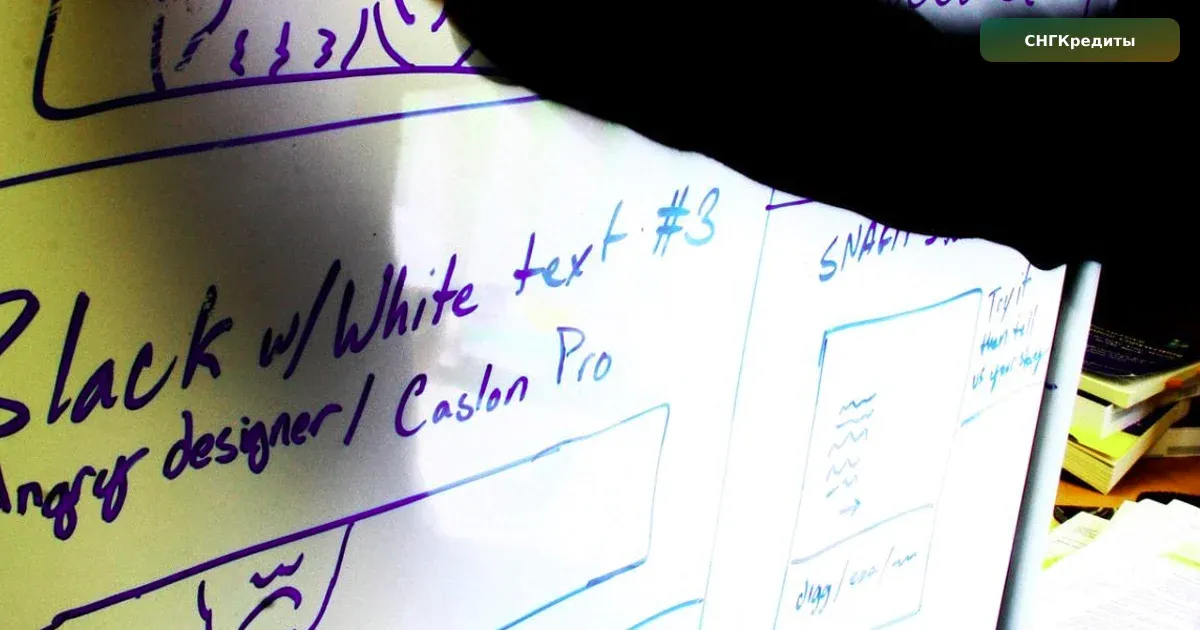 СНГКредиты
Black w/White text #3
Angry designer / Caslon Pro
Try it
then tell
us your story
digg/